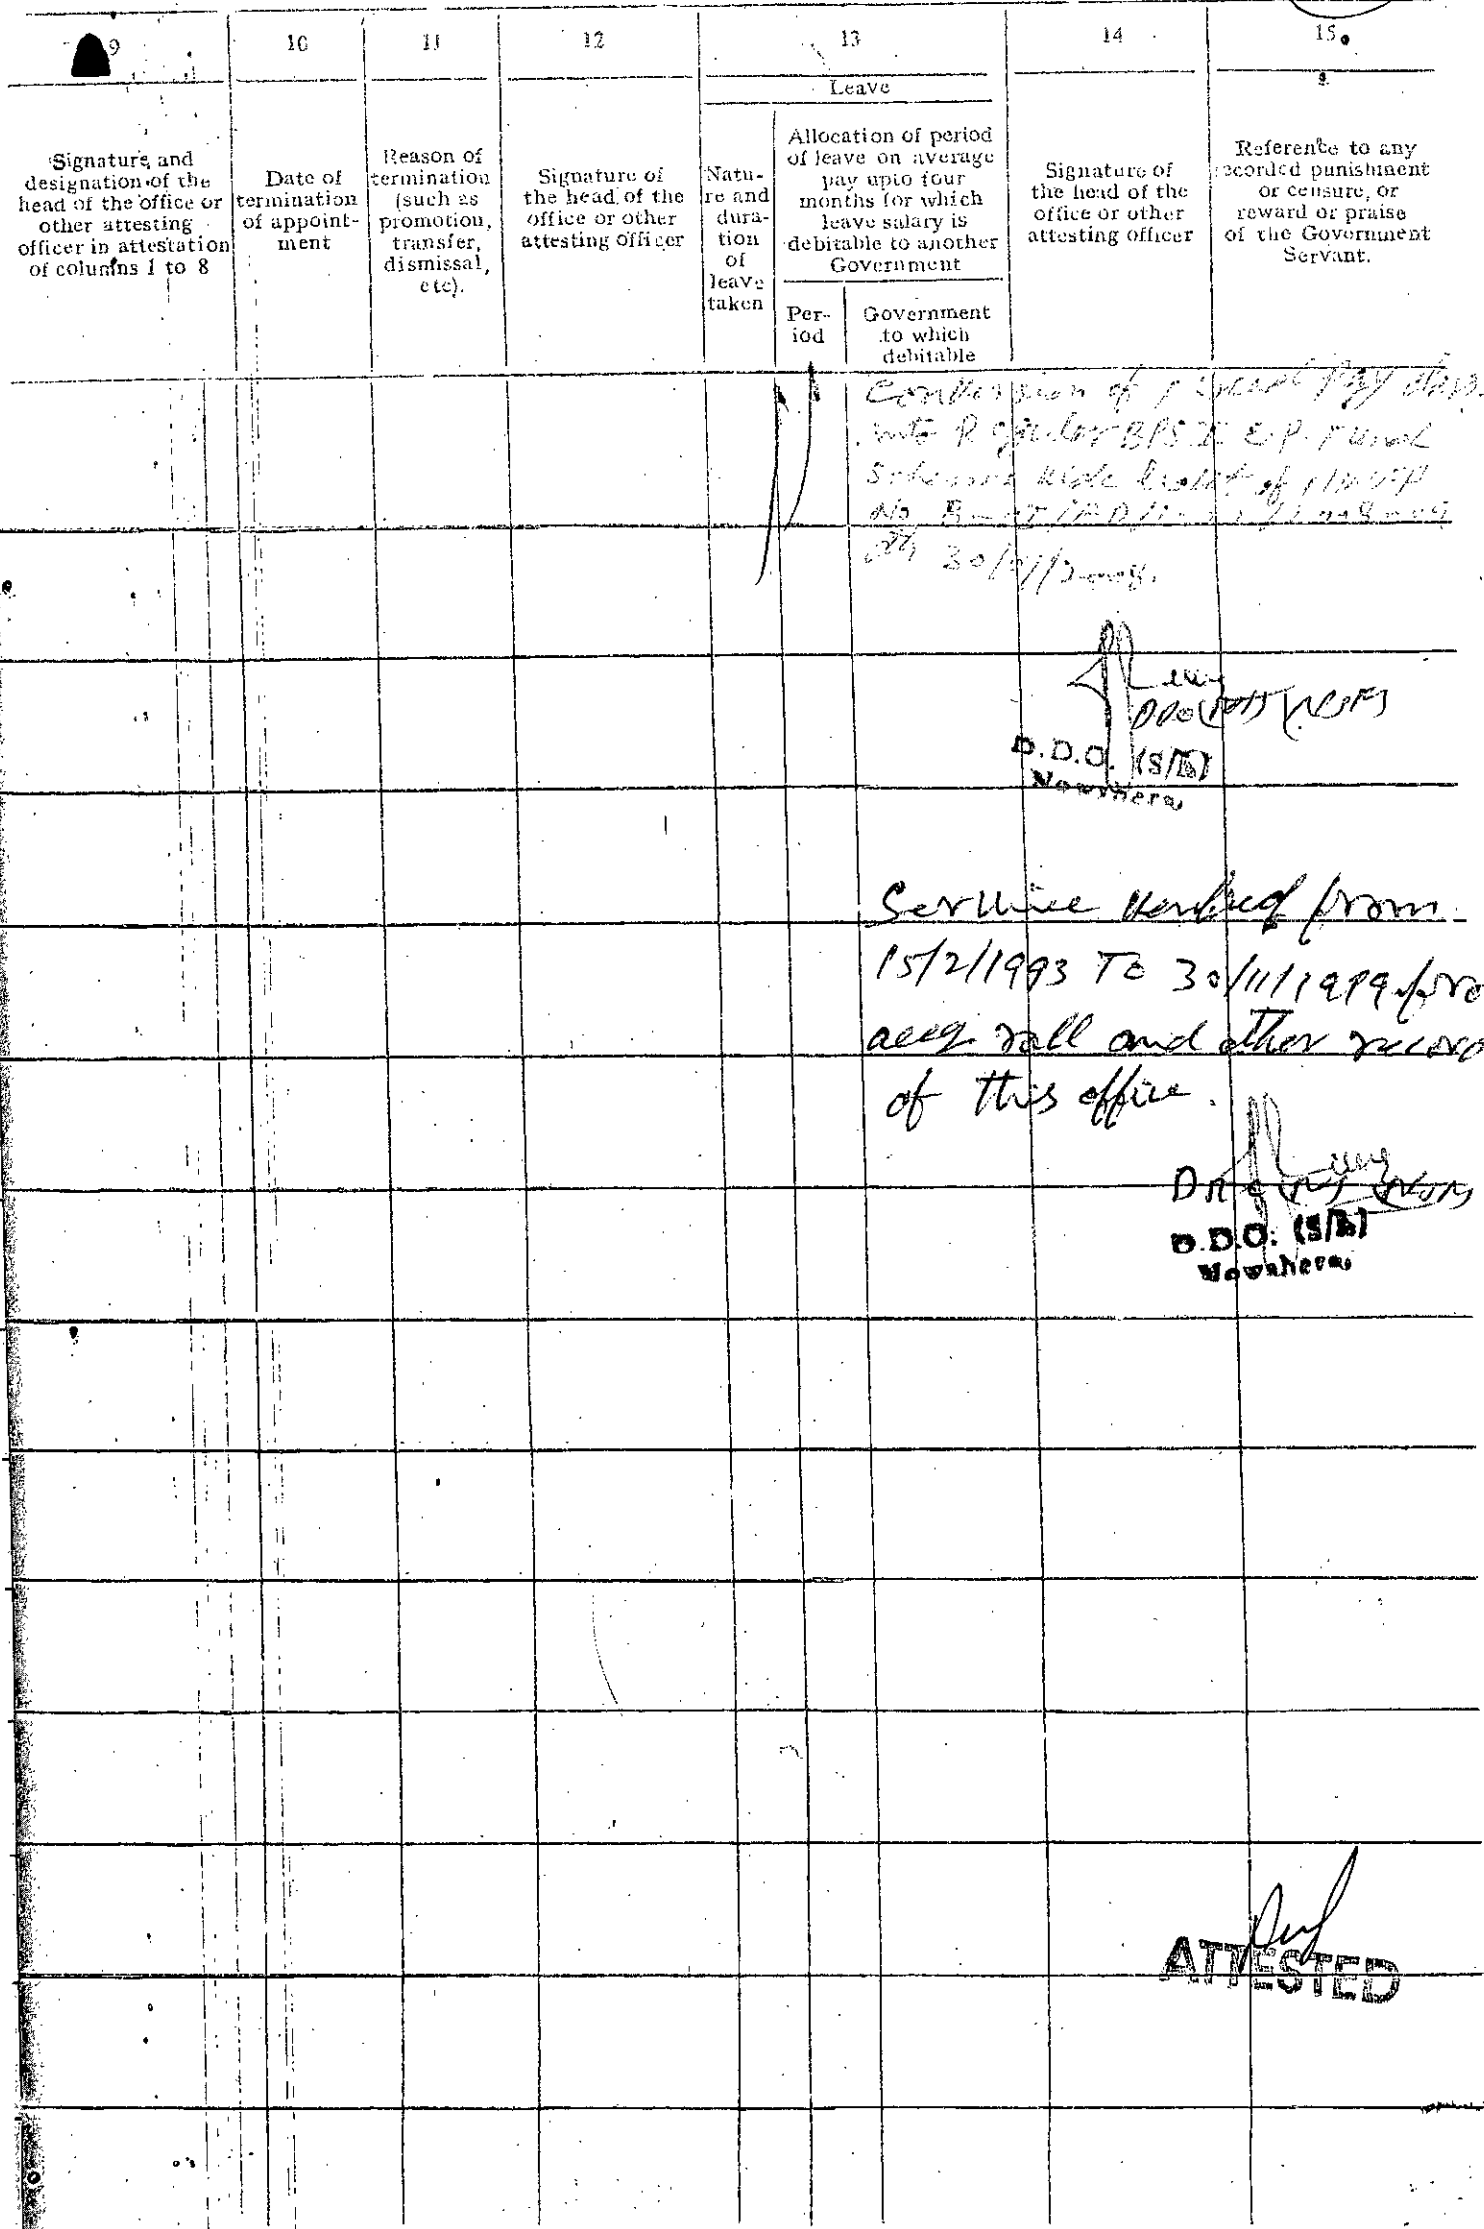 9 10 11 12 13 14 15
Leave
Signature and
designation of the
head of the office or
other attesting
officer in attestation
of columns 1 to 8
Date of
termination
of appoint-
ment
Reason of
termination
(such as
promotion,
transfer,
dismissal,
etc).
Signature of
the head of the
office or other
attesting officer
Natu-
re and
dura-
tion
of
leave
taken
Allocation of period
of leave on average
pay upto four
months for which
leave salary is
debitable to another
Government
Per-
iod
Government
to which
debitable
Signature of
the head of the
office or other
attesting officer
Reference to any
recorded punishment
or censure, or
reward or praise
of the Government
Servant.
Conversion of Pay
into BPS
Scheme
No
30/ /2008.
D.D.O. (S/B)
Nowshera
Service verified from
15/2/1993 To 30/11/1999
roll and other record
of this office.
D.D.O. (S/B)
Nowshera
ATTESTED